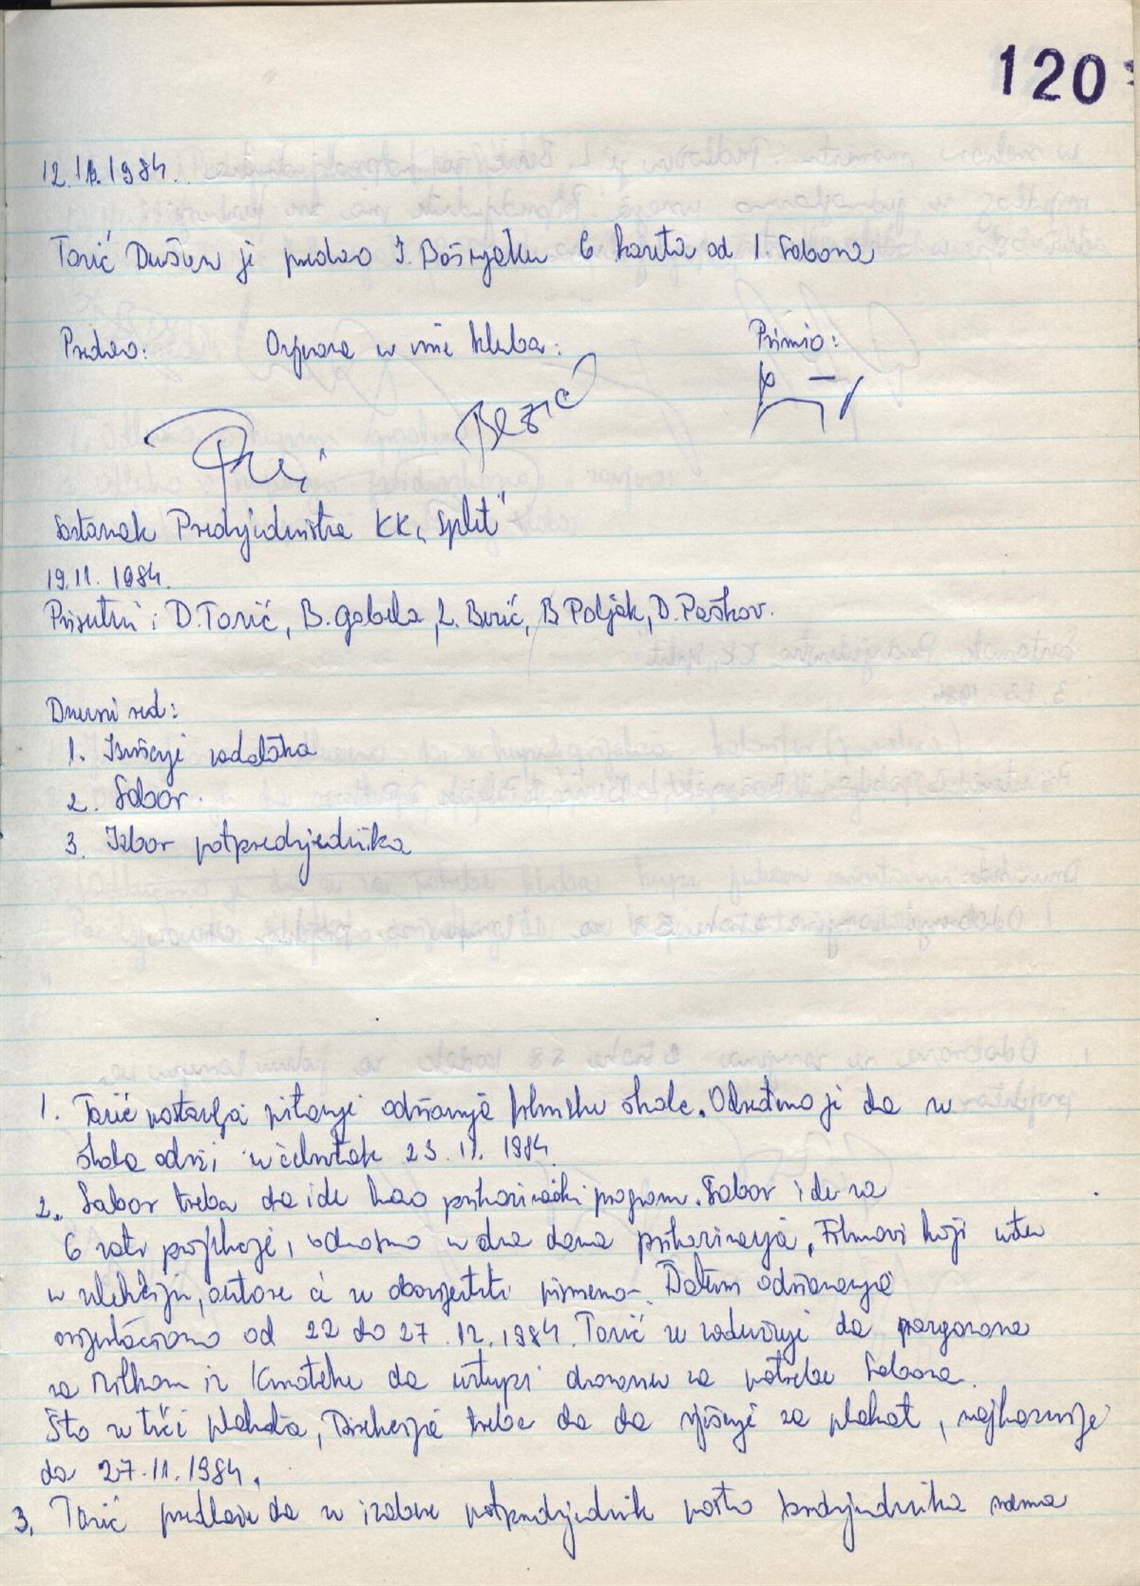 120
12.11.1984.
Torić Dušan je predao I. Bošnjaku 6 karata od 1. Sabora
Predao: Ovjerava u ime kluba: Primio:
Bezić
Sastanak Predsjedništva KK „Split"
19.11. 1984.
Prisutni: D. Torić, B. Gabela, L. Berić, B Poljak, D. Paškov.
Dnevni red:
1. Izvješaje
2. Sabor.
3. Izbor potpredsjednika
1. Torić postavlja pitanje održanja filmske škole. Određeno je da se
škola održi u četvrtak 23.11. 1984.
2. Sabor treba da ide kao prikazivački program. Sabor ide sa
6 sati projekcije, odnosno u dva dana prikazivanja, Filmovi koji uđu
u selekciju, autore će se obavjestiti pismeno. Datum održavanja
orjentaciono od 22 do 27.12.1984. Torić se zadužuje da porazgovara
sa Milkom iz Kinoteke da ustupi dvoranu za potrebe Sabora.
Što se tiče plakata, Direkcija treba da da rješenje za plakat, najkasnije
do 27.11.1984.
3. Torić predlaže da se izabere potpredsjednik pošto predsjednika nema